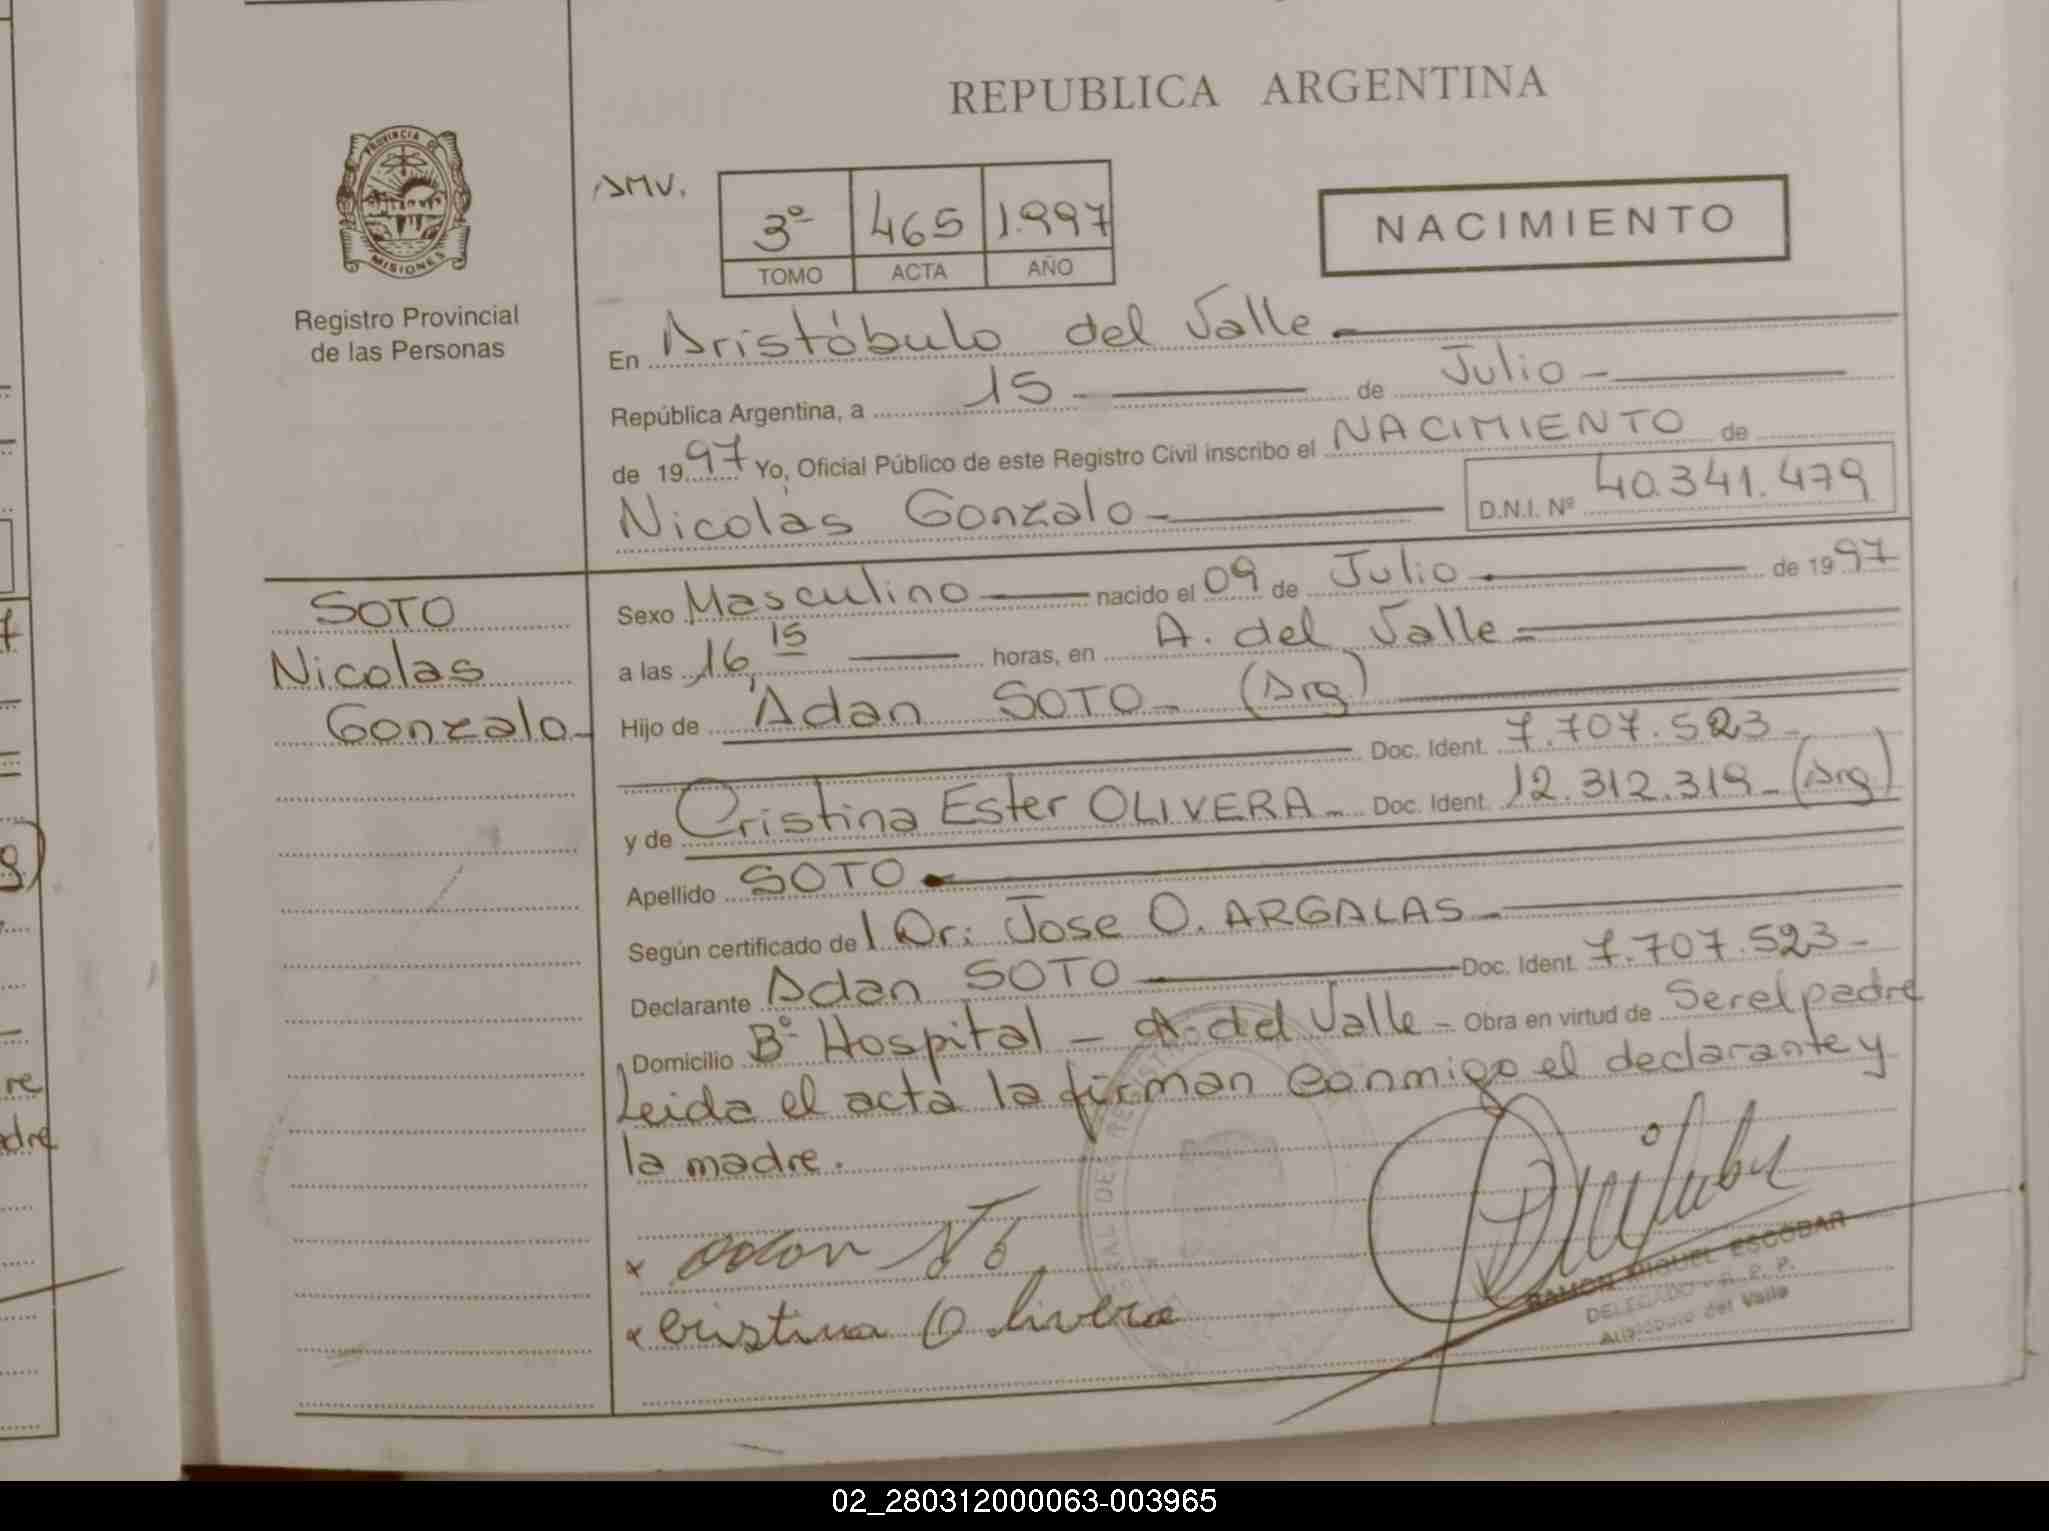 REPUBLICA ARGENTINA
PROVINCIA DE
MISIONES
Registro Provincial
de las Personas
AMV.
3º 465 1.997
TOMO ACTA AÑO
NACIMIENTO
En Aristóbulo del Valle
República Argentina, a 15 de Julio
de 1997 Yo, Oficial Público de este Registro Civil inscribo el NACIMIENTO de
Nicolás Gonzalo D.N.I. Nº 40.341.479
SOTO
Nicolas
Gonzalo
Sexo Masculino nacido el 09 de Julio de 1997
a las 16,15 horas, en A. del Valle
Hijo de Adan SOTO (Arg)
Doc. Ident. 7.707.523
y de Cristina Ester OLIVERA Doc. Ident. 12.312.319 (Arg)
Apellido SOTO
Según certificado de Dr: Jose O. ARGALAS
Declarante Adan SOTO Doc. Ident. 7.707.523
Domicilio Bº Hospital - A. del Valle - Obra en virtud de Ser el padre
Leida el acta la firman conmigo el declarante y
la madre.
x Adan
x Cristina Olivera
RAMON MIGUEL ESCOBAR
DELEGADO R. P. P.
Aristobulo del Valle
02_280312000063-003965